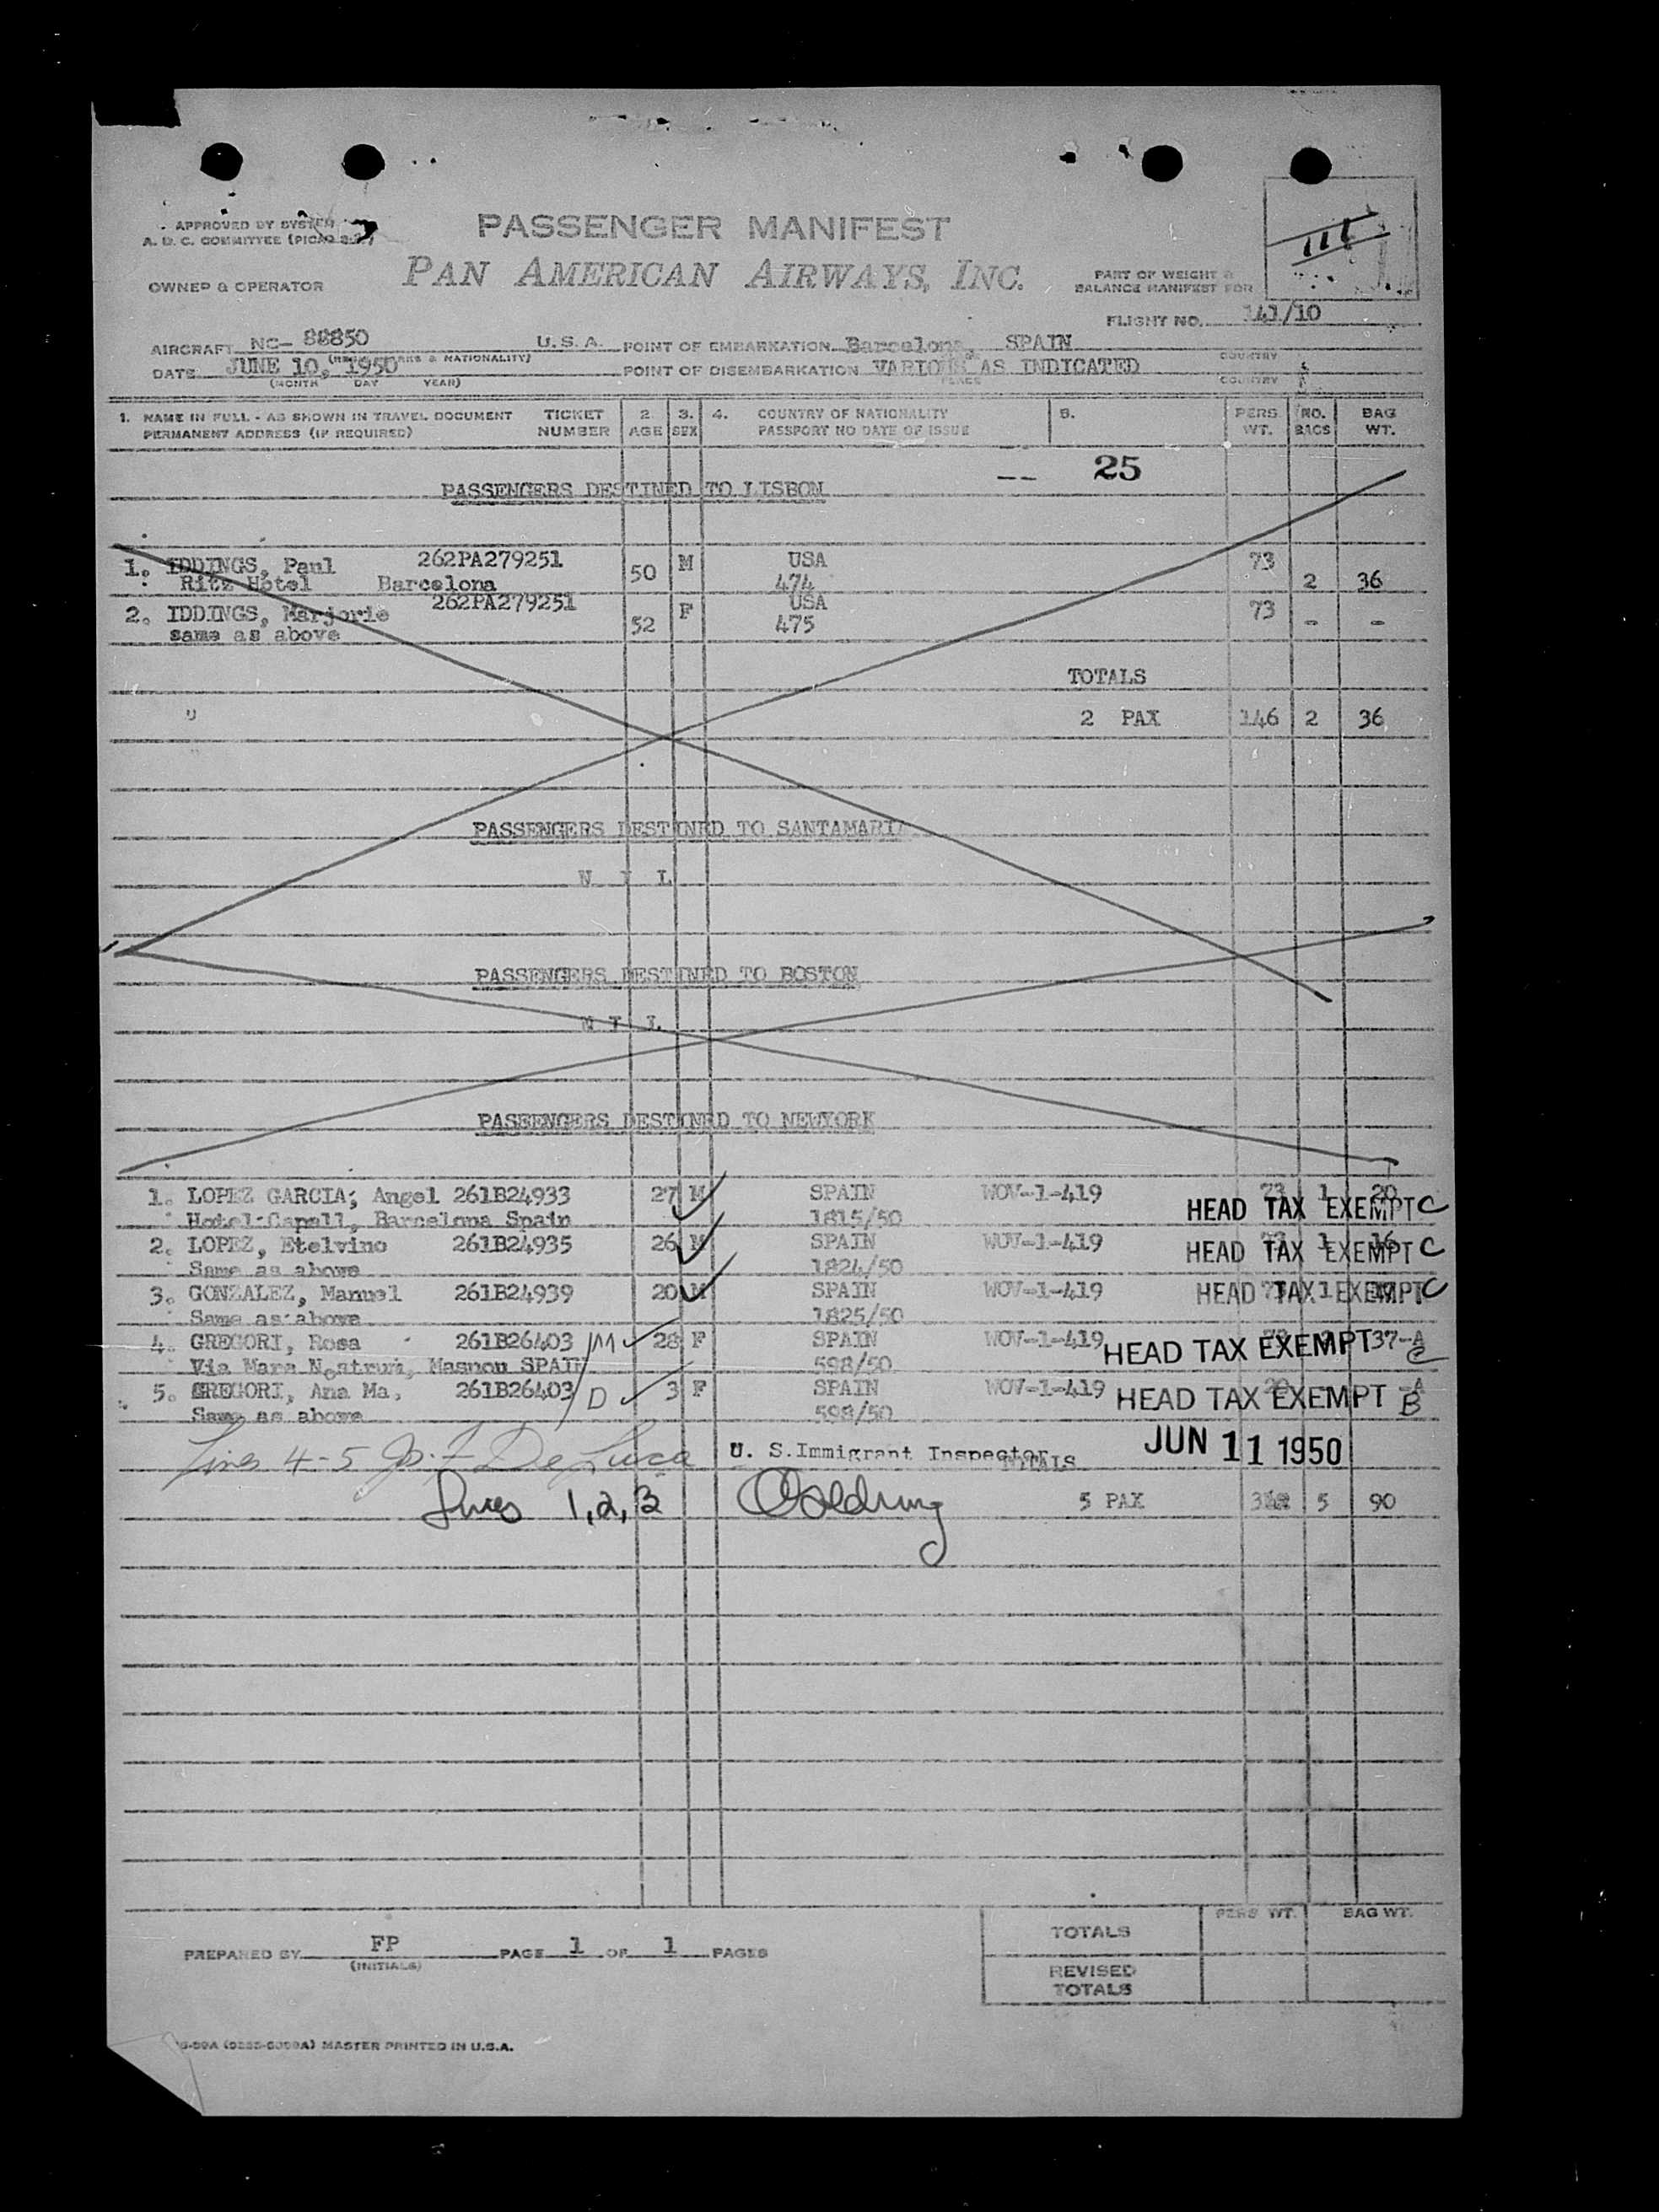 APPROVED BY SYSTEM
A. D. C. COMMITTEE
PASSENGER MANIFEST
PAN AMERICAN AIRWAYS, INC.
OWNER & OPERATOR
PART OF WEIGHT &
BALANCE MANIFEST FOR
FLIGHT NO. 141/10
AIRCRAFT NC- 88850 U. S. A. POINT OF EMBARKATION Barcelona, SPAIN
MARKS & NATIONALITY) COUNTRY
DATE JUNE 10, 1950 POINT OF DISEMBARKATION VARIOUS AS INDICATED
(MONTH DAY YEAR) PLACE COUNTRY
1. NAME IN FULL - AS SHOWN IN TRAVEL DOCUMENT TICKET 2. 3. 4. COUNTRY OF NATIONALITY 5. PERS NO. BAG
PERMANENT ADDRESS (IF REQUIRED) NUMBER AGE SEX PASSPORT NO DATE OF ISSUE WT. BAGS WT.
-- 25
PASSENGERS DESTINED TO LISBON
1. IDDINGS, Paul 262PA279251 50 M USA 73
Ritz Hotel Barcelona 474 2 36
2. IDDINGS, Marjorie 262PA279251 52 F USA 73 - -
same as above 475
TOTALS
2 PAX 146 2 36
PASSENGERS DESTINED TO SANTAMARIA
N I L
PASSENGERS DESTINED TO BOSTON
N I L
PASSENGERS DESTINED TO NEWYORK
1. LOPEZ GARCIA; Angel 261B24933 27 M SPAIN WOV-1-419 73 1 20
Hotel Capell, Barcelona Spain 1815/50 HEAD TAX EXEMPT C
2. LOPEZ, Etelvino 261B24935 26 M SPAIN WOV-1-419 1 16
Same as above 1824/50 HEAD TAX EXEMPT C
3. GONZALEZ, Manuel 261B24939 20 M SPAIN WOV-1-419 HEAD TAX EXEMPT C
Same as above 1825/50
4. GREGORI, Rosa 261B26403 /M 28 F SPAIN WOV-1-419 HEAD TAX EXEMPT 37-A
Via Mare Nostrum, Masnou SPAIN 598/50 C
5. GREGORI, Ana Ma, 261B26403 / D 3 F SPAIN WOV-1-419 HEAD TAX EXEMPT -A
Same as above 598/50 B
Lines 4-5 Jos. F DeLuca U. S. Immigrant Inspector TOTALS JUN 11 1950
Lines 1,2,3 Goldring 5 PAX 5 90
PREPARED BY FP PAGE 1 OF 1 PAGES
(INITIALS)
PERS WT. BAG WT.
TOTALS
REVISED
TOTALS
MASTER PRINTED IN U.S.A.